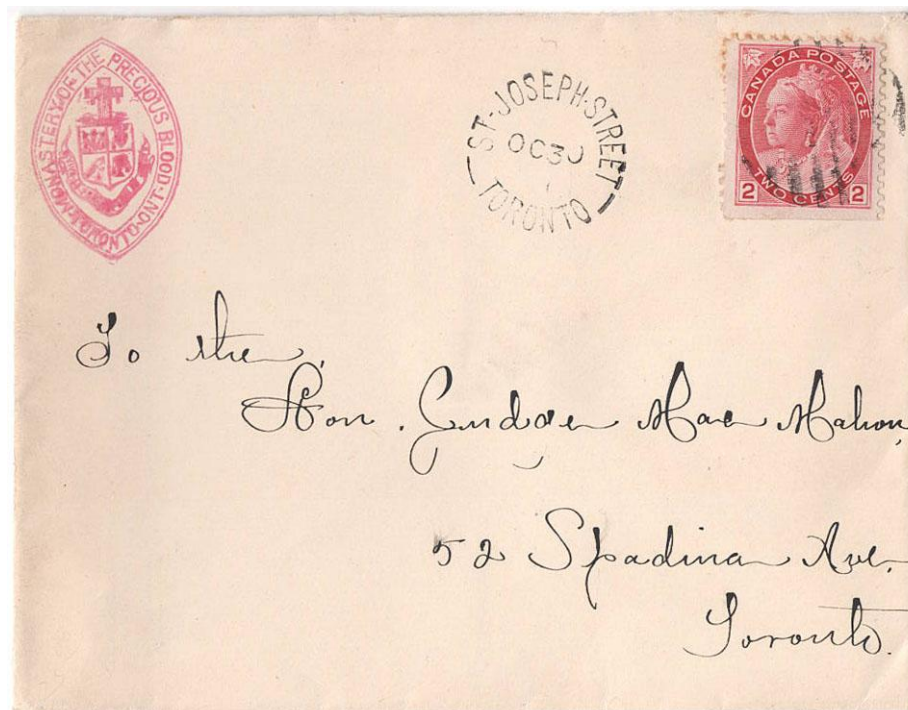 MONASTERY OF THE PRECIOUS BLOOD
TORONTO. ONT.
ST. JOSEPH. STREET
OC 30
TORONTO
CANADA POSTAGE
2 TWO CENTS 2
To the
Hon. Judge Mac Mahon,
52 Spadina Ave.
Toronto.